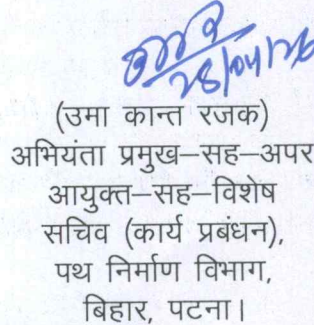 28/04/26
(उमा कान्त रजक)
अभियंता प्रमुख–सह–अपर
आयुक्त–सह–विशेष
सचिव (कार्य प्रबंधन),
पथ निर्माण विभाग,
बिहार, पटना।